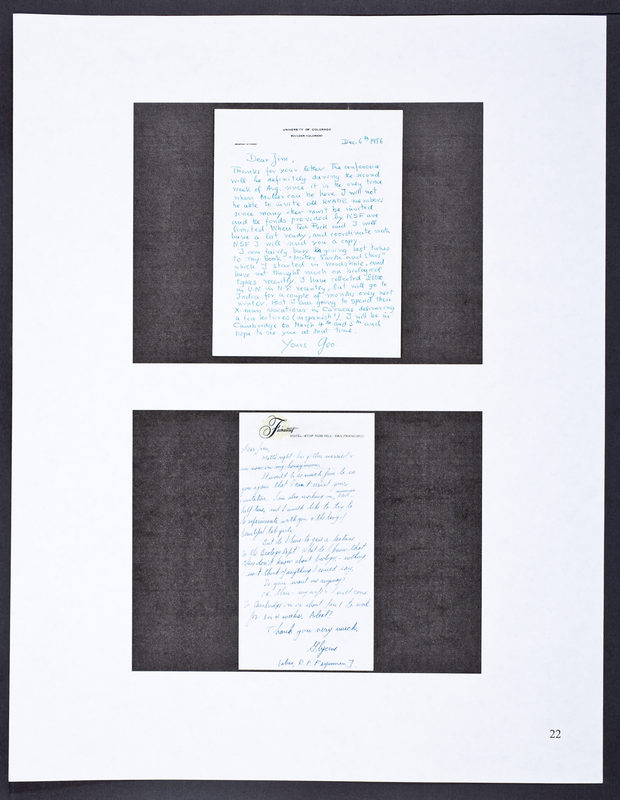 UNIVERSITY OF COLORADO
BOULDER, COLORADO
Dec. 6th 1956
Dear Jim,
Thanks for your letter. The conference
will be definitely during the second
week of Aug. since it is the only time
when Muller can be here. I will not
be able to invite all members
since many other must be invited
and the funds provided by NSF are
limited. When Ted Puck and I will
have a list ready, and coordinate with
NSF I will send you a copy.
I am fairly busy giving last touches
to my book "Matter Earth and Stars"
which I started in Woods Hole, and
have not thought much on biological
topics recently. I have collected
in U.N in N.Y. recently, but will go to
India for a couple of months only next
winter. But I am going to spend then
X-mas vacations in Caracas delivering
a few lectures (in spanish!). I will be in
Cambridge on March 4th and 5th and
hope to see you at that time.
Yours Geo
Fairmont
HOTEL · ATOP NOB HILL · SAN FRANCISCO
Dear Jim,
married &
am now on my honeymoon.
It would be so much fun to see
you again that I can't resist your
invitation. I am also working in
half time, and I would like to try to
do experiments with you & the bevy of
beautiful lab girls.
But do I have to give a lecture
to the Biology Dept? What do I know that
they don't know about biology, - nothing
isn't that anything I could say.
Do you want me anyway?
my wife & I will come
to Cambridge in or about June 1 to work
for 3 or 4 weeks. Adest?
Thank you very much,
(alias R. P. Feynman).
22